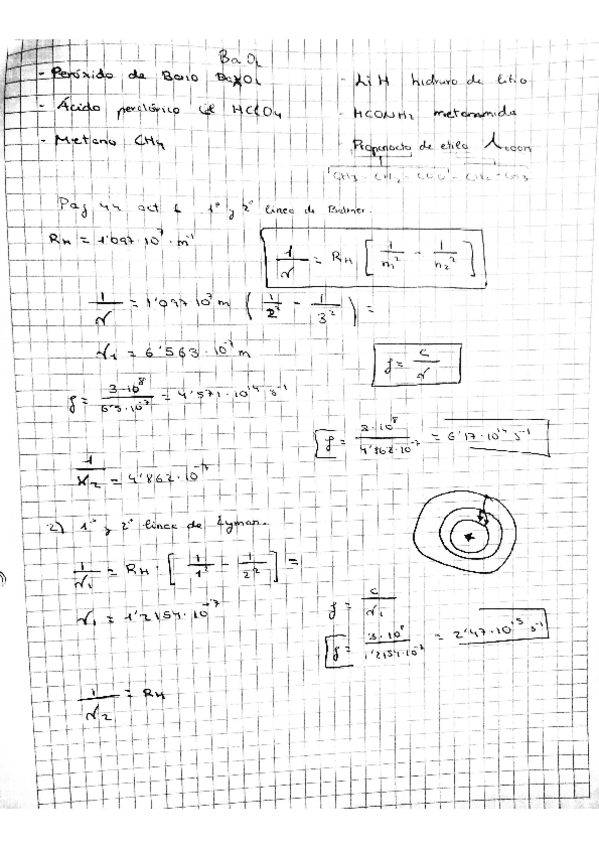 BaO₂
- Peróxido de Bario BaXO₂
- Ácido perclórico HClO₄
- Metano CH₄
- LiH hidruro de litio
- HCONH₂ metanamida
Propanoato de etilo
CH₃ - CH₂ - COO - CH₂ - CH₃
Pag 44 act 6 1ª y 2ª linea de Balmer.
R_H = 1'097·10⁷ m⁻¹
1/λ = R_H [ 1/n₁² - 1/n₂² ]
1/λ = 1'097 10⁷ m ( 1/2² - 1/3² ) =
λ₁ = 6'563·10⁻⁷ m
f = c/λ
f = 3·10⁸ / 6'5·10⁻⁷ = 4'571·10¹⁴ s⁻¹
f = 3·10⁸ / 4'862·10⁻⁷ = 6'17·10¹⁴ s⁻¹
1/λ₂ = 4'862·10⁻⁷
2) 1ª y 2ª linea de Lyman.
1/λ₁ = R_H · [ 1/1² - 1/2² ] =
λ₁ = 1'2154·10⁻⁷
f = c/λ₁
f = 3·10⁸ / 1'2154·10⁻⁷ = 2'47·10¹⁵ s⁻¹
1/λ₂ = R_H